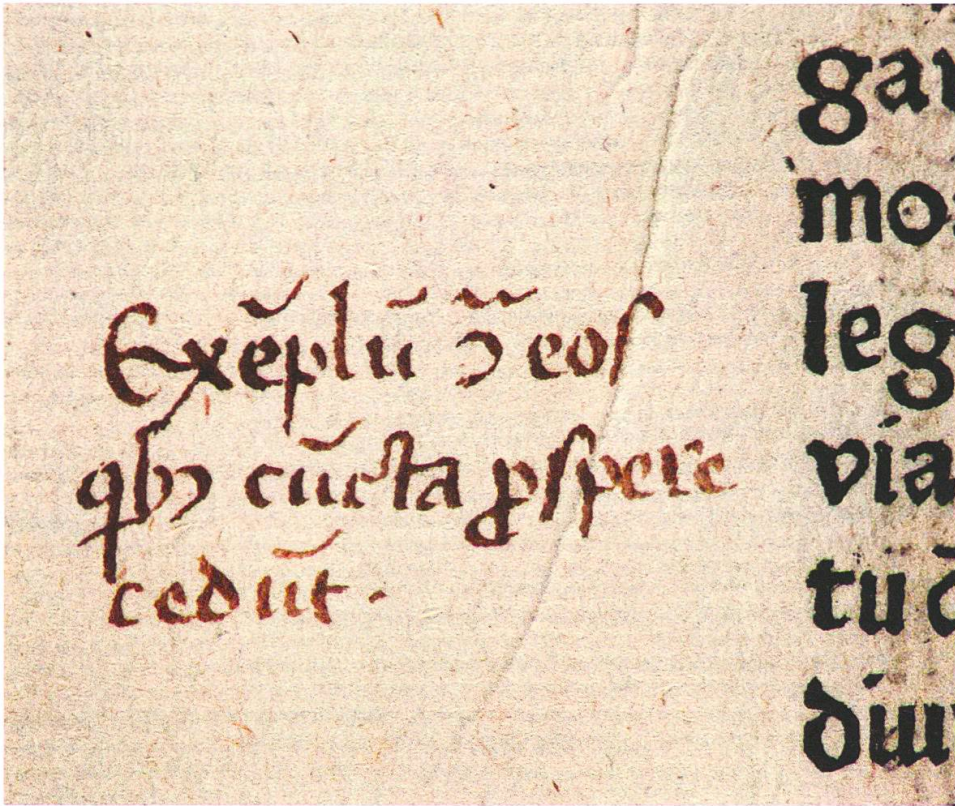 Exẽplũ ↄ̃ eos
qbꝫ cũcta ꝓspere
cedũt.
gau
mo
leg
via
tu d
diu